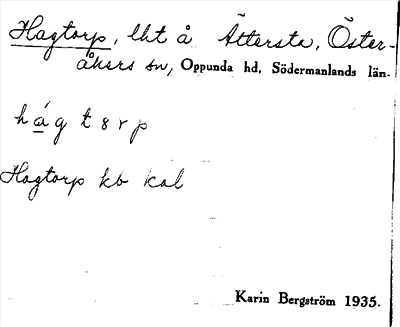 Hagtorp, lht å Ättersta, Öster-
åkers sn, Oppunda hd, Södermanlands län.
hágtɜrp
Hagtorp kb kal
Karin Bergström 1935.